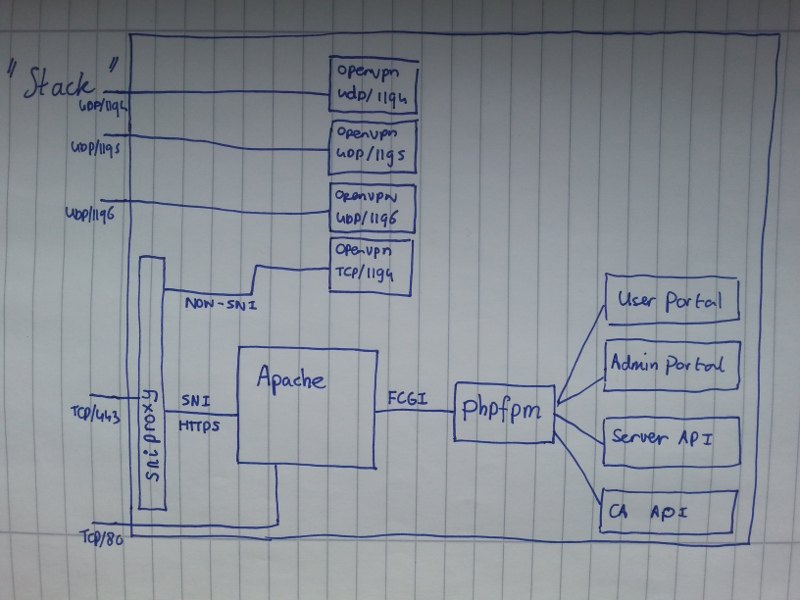 "Stack"
UDP/1194
openvpn
udp/1194
UDP/1195
openvpn
UDP/1195
UDP/1196
openvpn
UDP/1196
openvpn
TCP/1194
NON-SNI
sniproxy
TCP/443
SNI
HTTPS
Apache
FCGI
phpfpm
User Portal
Admin Portal
Server API
CA API
TCP/80